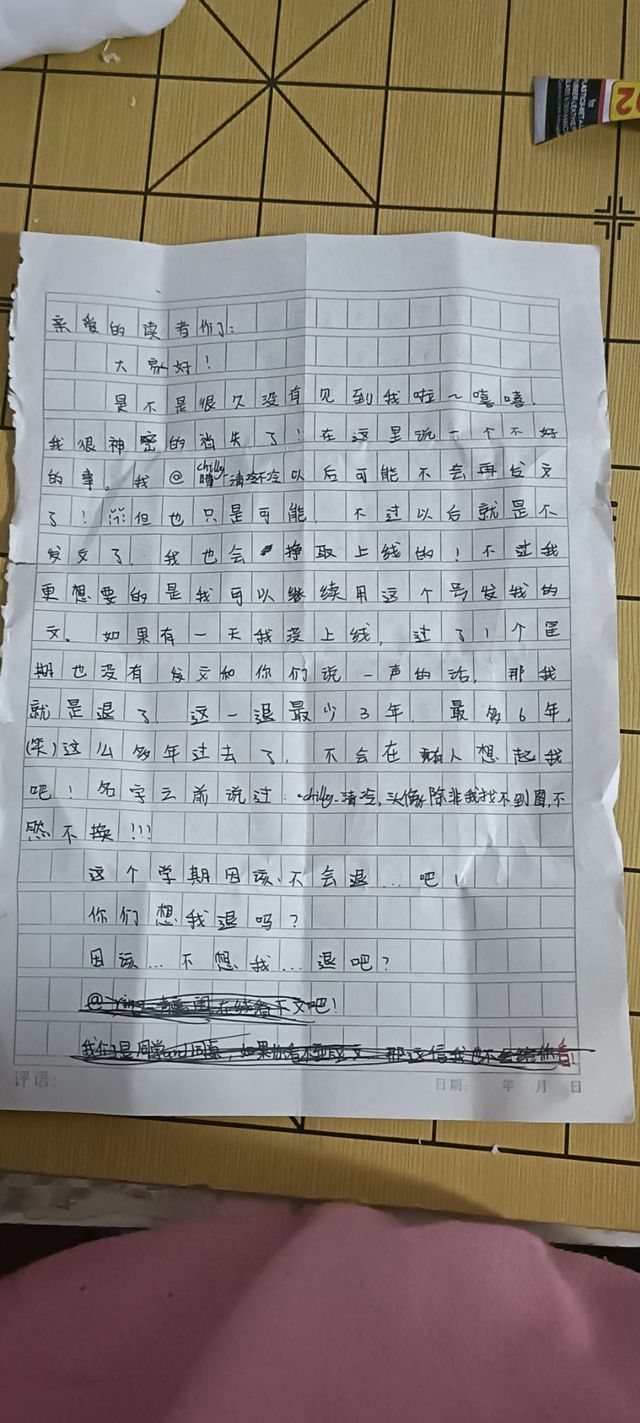 亲爱的读者们了:
大家好!
是不是很久没有见到我啦~嘻嘻.
我很神密的消失了!在这里说一个不好
的事。我@chilly-清冷以后可能不会再发文
了!但也只是可能. 不过以后就是不
发文了. 我也会挣取上线的!不过我
更想要的是我可以继续用这个号发我的
文。如果有一天我没上线, 过了1个星
期也没有发文和你们说一声的话, 那我
就是退了. 这一退最少3年. 最多6年,
(笑)这么多年过去了, 不会在有人想起我
吧!名字之前说过:-chilly-清冷,头像除非我找不到图,不
然不换!!!
这个学期因该不会退...吧!
你们想我退吗?
因该...不想我...退吧?
在线看下文吧!
我们是同学and同桌,如果你看不到这文 那这信我也不会给你看!
评语:
日期: 年 月 日
for
PLASTIC·METAL
RUBBER·LEATHER
02